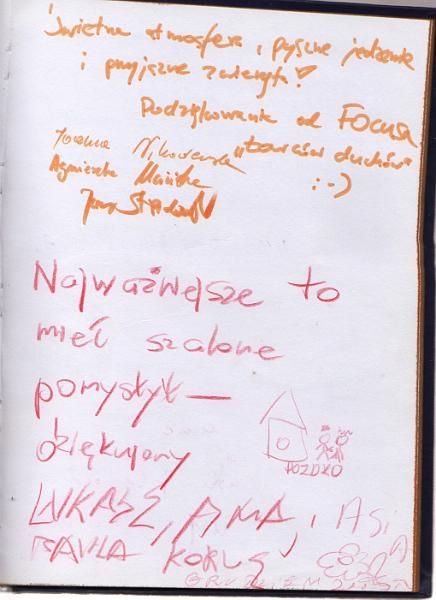 Świetna atmosfera, pyszne jedzenie
i przyjazne zwierzęta!
Podziękowania od FOCUSA
"łowców duchów"
:-)
Joanna Nikodemska
Agnieszka
Najważniejsze to
mieć szalone
pomysły —
dziękujemy
ŁUKASZ, ANKA, ASIA
PAULA KORUS